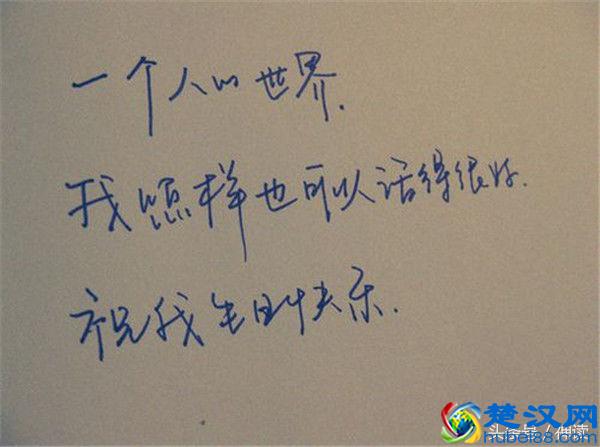 一个人的世界.
我怎样也可以活得很好.
祝我生日快乐.
楚汉网
hubei88.com
头条号/仲读